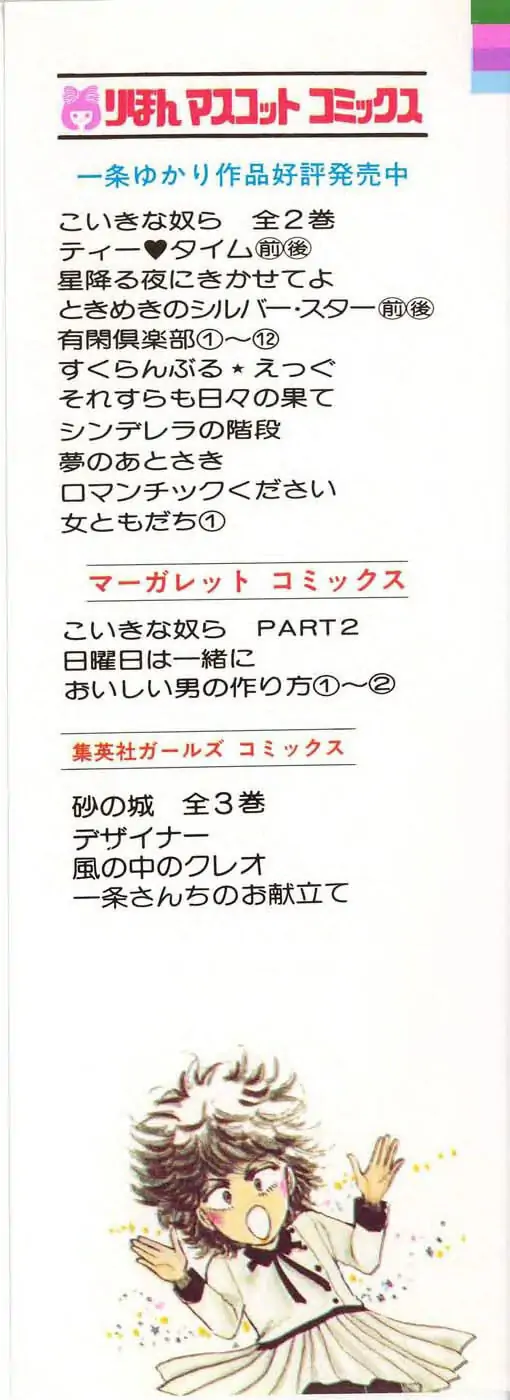 りぼんマスコットコミックス
一条ゆかり作品好評発売中
こいきな奴ら 全2巻
ティー♥タイム㊤前後
星降る夜にきかせてよ
ときめきのシルバー・スター前後
有閑倶楽部①〜⑫
すくらんぶる★えっぐ
それすらも日々の果て
シンデレラの階段
夢のあとさき
ロマンチックください
女ともだち①
マーガレット コミックス
こいきな奴ら PART2
日曜日は一緒に
おいしい男の作り方①〜②
集英社ガールズ コミックス
砂の城 全3巻
デザイナー
風の中のクレオ
一条さんちのお献立て